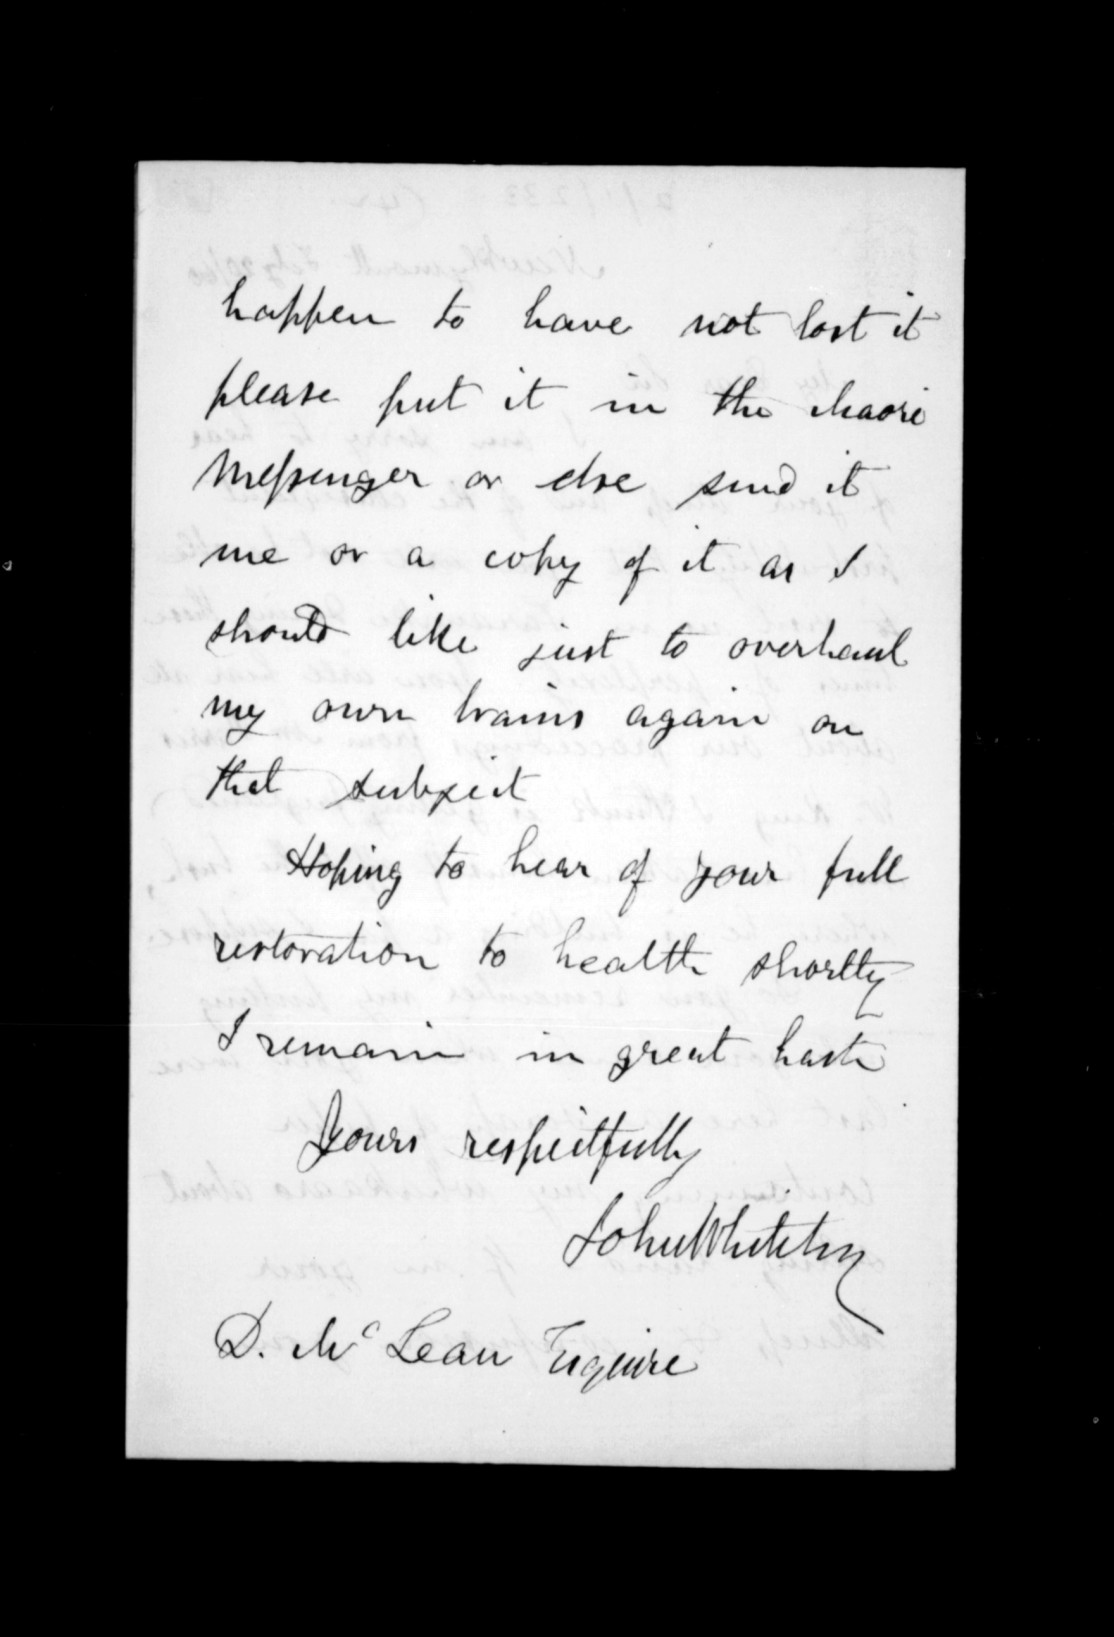 happen to have not lost it
please put it in the Maori
Messenger or else send it
me or a copy of it as I
should like just to overhaul
my own brains again on
that subject
Hoping to hear of your full
restoration to health shortly
I remain in great haste
Yours respectfully
John Whiteley
D. Mc Lean Esquire